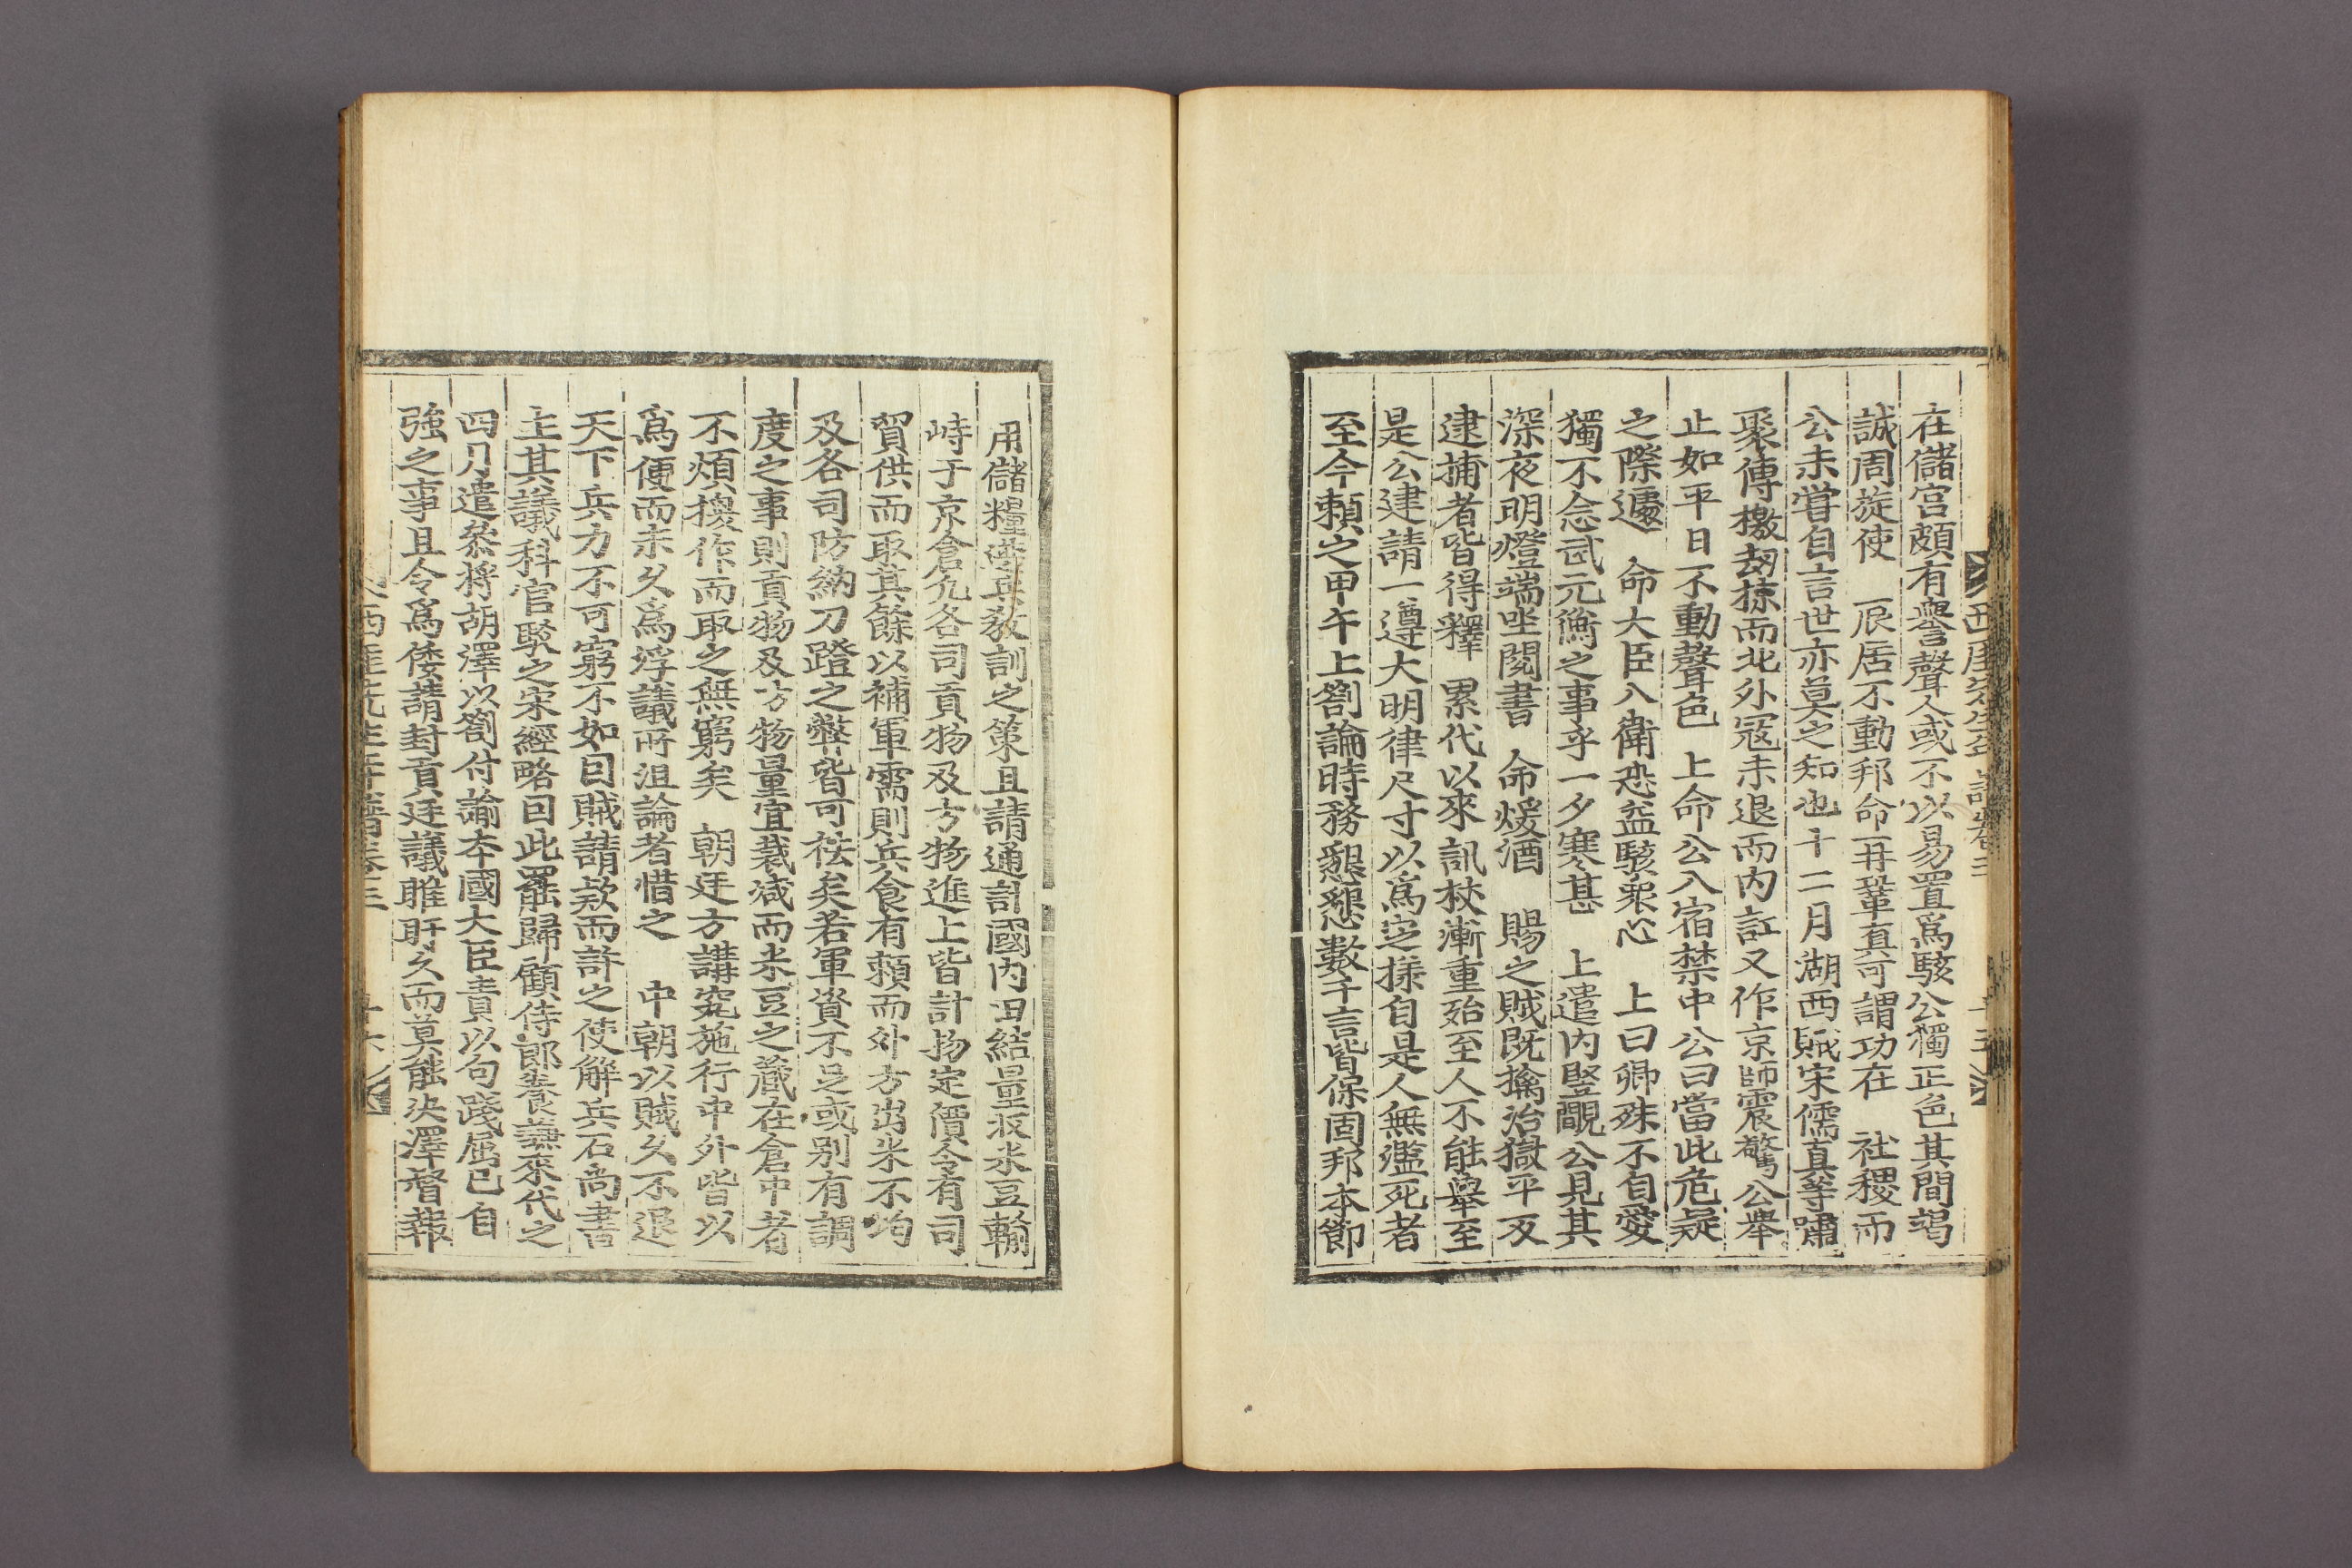 在儲宮頗有譽聲人或不以易置爲駭公獨正色其間竭
誠周旋使　辰居不動邦命再鞏眞可謂功在　社稷而
公未嘗自言世亦莫之知也十二月湖西賊宋儒眞等嘯
聚傳檄刼掠而北外寇未退而内訌又作京師震驚公舉
止如平日不動聲色　上命公入宿禁中公曰當此危疑
之際遽　命大臣入衛恐益駭衆心　上曰卿殊不自愛
獨不念武元衡之事乎一夕寒甚　上遣内竪覵公見其
深夜明燈端坐閱書　命煖酒　賜之賊既擒治獄平反
逮捕者皆得釋　累代以來訊杖漸重殆至人不能舉至
是公建請一遵大明律尺寸以爲定樣自是人無濫死者
至今賴之甲午上劄論時務懇懇數千言皆保固邦本節
用儲糧選兵敎訓之策且請通計國内田結量收米豆輸
峙于京倉凡各司貢物及方物進上皆計物定價令有司
貿供而取其餘以補軍需則兵食有賴而外方出米不均
及各司防納刀蹬之弊皆可袪矣若軍資不足或别有調
度之事則貢物及方物量宜裁減而米豆之藏在倉中者
不煩換作而取之無窮矣　朝廷方講究施行中外皆以
爲便而未久爲浮議所沮論者惜之　中朝以賊久不退
天下兵力不可窮不如因賊請款而許之使解兵石尚書
主其議科官駁之宋經略因此罷歸顧侍郎養謙來代之
四月遣參將胡澤以劄付諭本國大臣責以句踐屈已自
強之事且令爲倭請封貢廷議睢盱久而莫能決澤督報